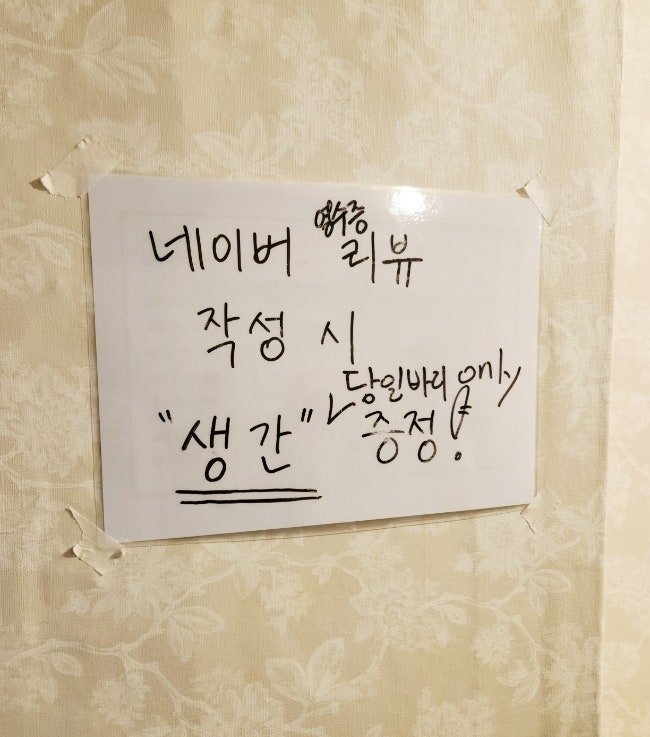 네이버 영수증 리뷰
작성 시
당일바리 only
"생간" 증정!